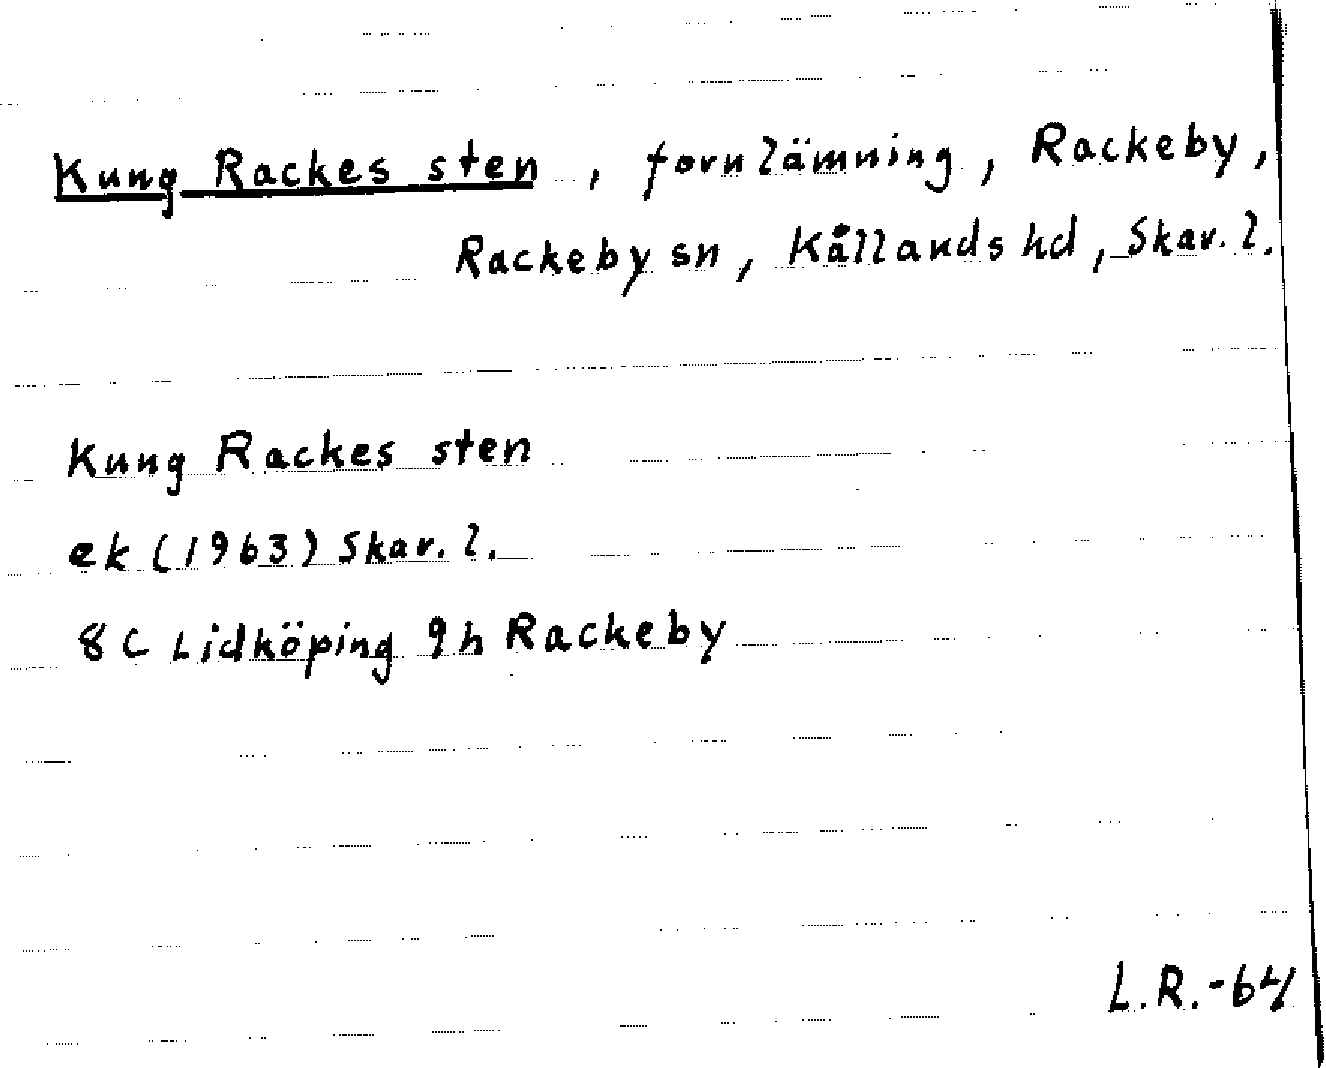 Kung Rackes sten, fornlämning, Rackeby,
Rackeby sn, Kållands hd, Skar. l.
Kung Rackes sten
ek (1963) Skar. l.
8C Lidköping 9h Rackeby
L.R.-64